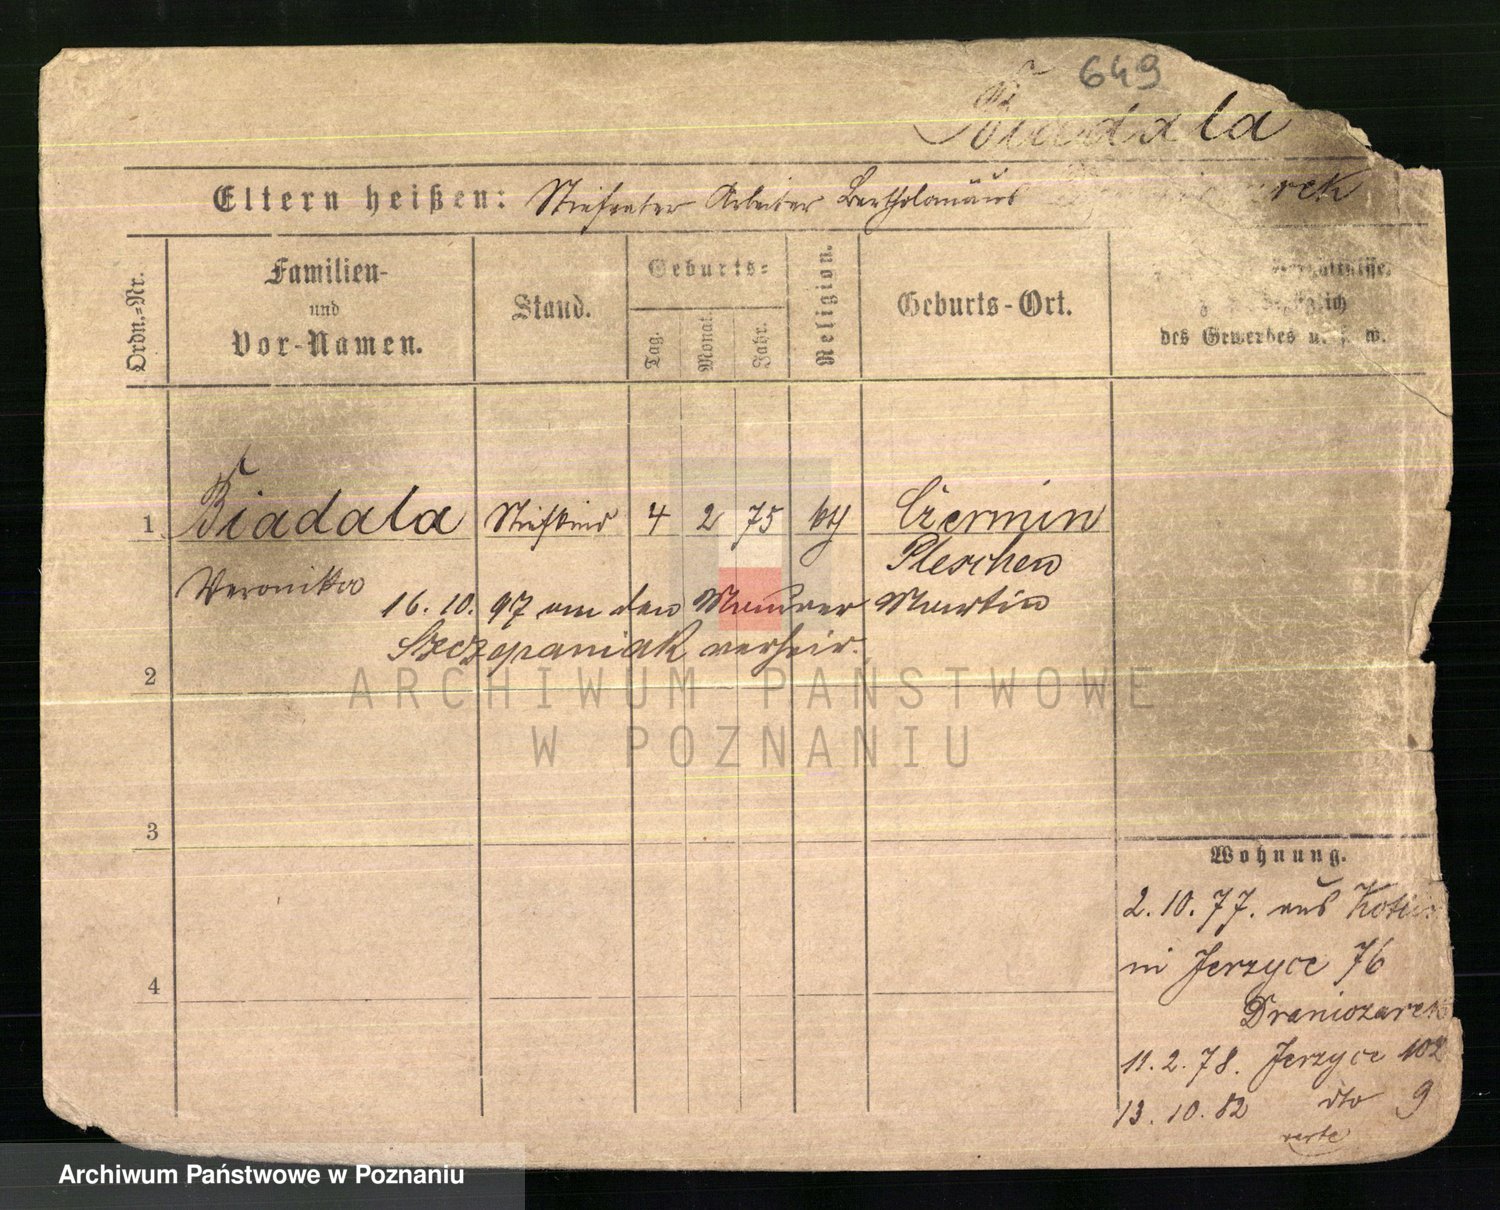 649
Biadala
Eltern heißen: Stiefvater Arbeiter Bartholomäus
Ordn.-Nr.
Familien- und Vor-Namen.
Stand.
Geburts-
Tag.
Monat.
Jahr.
Religion.
Geburts-Ort.
des Gewerbes u. s. w.
1 Biadala Stiefkind 4 2 75 kth Czermin
Pleschen
Veronika
16. 10. 97 an den Maurer Martin
Szczepaniak verheir.
2
ARCHIWUM PAŃSTWOWE
W POZNANIU
3
4
Wohnung.
2. 10. 77. aus
in Jerzyce 76
11. 2. 78. Jerzyce 102
13. 10. 82 dto 9
verte
Archiwum Państwowe w Poznaniu